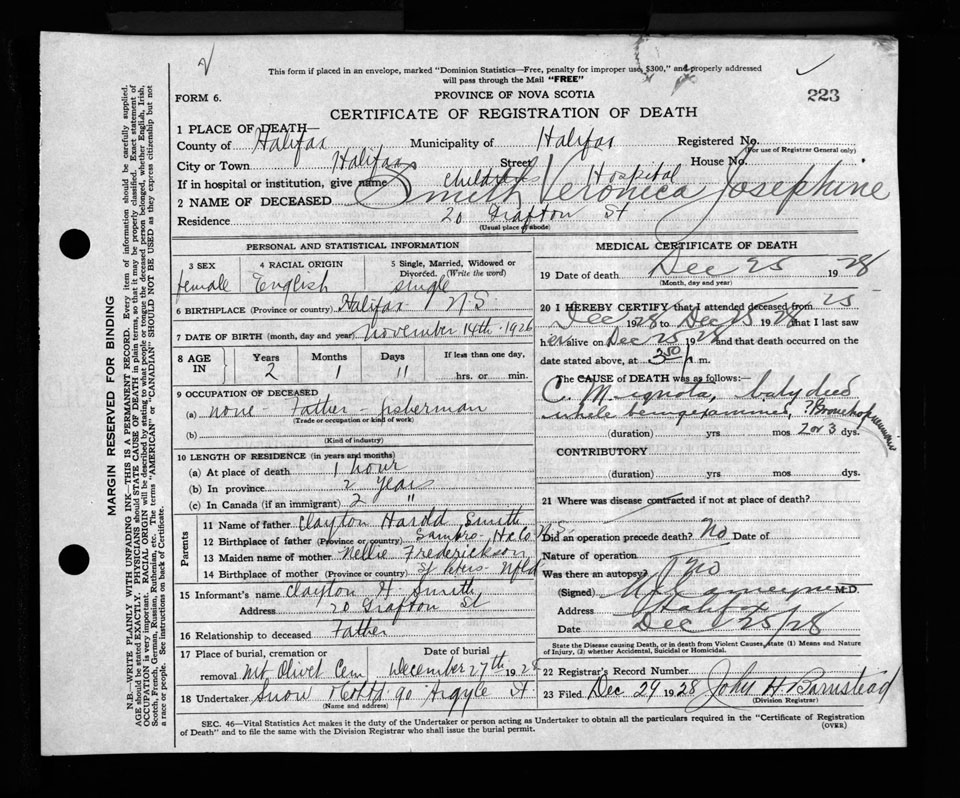 This form if placed in an envelope, marked "Dominion Statistics—Free, penalty for improper use, $300," and properly addressed
will pass through the Mail "FREE"
FORM 6.
PROVINCE OF NOVA SCOTIA
223
CERTIFICATE OF REGISTRATION OF DEATH
1 PLACE OF DEATH—
County of Halifax Municipality of Halifax Registered No.
(For use of Registrar General only)
City or Town Halifax Street House No.
If in hospital or institution, give name Childrens Hospital
2 NAME OF DECEASED Smith Veronica Josephine
Residence 20 Grafton St
(Usual place of abode)
PERSONAL AND STATISTICAL INFORMATION
3 SEX 4 RACIAL ORIGIN 5 Single, Married, Widowed or
Divorced. (Write the word)
female English single
6 BIRTHPLACE (Province or country) Halifax N S
7 DATE OF BIRTH (month, day and year) November 14th 1926
8 AGE IN Years Months Days If less than one day,
2 1 11 hrs. or min.
9 OCCUPATION OF DECEASED
(a) none - Father - fisherman
(Trade or occupation or kind of work)
(b)
(Kind of industry)
10 LENGTH OF RESIDENCE (in years and months)
(a) At place of death 1 hour
(b) In province 2 years
(c) In Canada (if an immigrant) 2 "
Parents
11 Name of father Clayton Harold Smith
12 Birthplace of father (Province or country) Sambro Halo N S
13 Maiden name of mother Nellie Frederickson
14 Birthplace of mother (Province or country) St Peters - Nfld
15 Informant's name Clayton H Smith
Address 20 Grafton St
16 Relationship to deceased Father
17 Place of burial, cremation or removal Date of burial
Mt Olivet Cem December 27th 1928
18 Undertaker Snow & Co Ltd 90 Argyle St
(Name and address)
MEDICAL CERTIFICATE OF DEATH
19 Date of death Dec 25 1928
(Month, day and year)
20 I HEREBY CERTIFY that I attended deceased from 25
Dec 1928 to Dec 25 1928 that I last saw
her alive on Dec 25 1928 and that death occurred on the
date stated above, at 3.50 p m.
The CAUSE of DEATH was as follows:—
C. M. ignota, baby died
while being examined, ? Bronchopneumonia
(duration) yrs mos 2 or 3 dys.
CONTRIBUTORY
(duration) yrs mos dys.
21 Where was disease contracted if not at place of death?
Did an operation precede death? No Date of
Nature of operation
Was there an autopsy? No
(Signed) M.D.
Address Halifax
Date Dec 25/28
State the Disease causing Death, or in death from Violent Causes, state (1) Means and Nature
of Injury, (2) whether Accidental, Suicidal or Homicidal.
22 Registrar's Record Number
23 Filed Dec 29 1928 John H Barnstead
(Division Registrar)
SEC. 46—Vital Statistics Act makes it the duty of the Undertaker or person acting as Undertaker to obtain all the particulars required in the "Certificate of Registration
of Death" and to file the same with the Division Registrar who shall issue the burial permit.
(OVER)
MARGIN RESERVED FOR BINDING
N.B.—WRITE PLAINLY WITH UNFADING INK—THIS IS A PERMANENT RECORD. Every item of information should be carefully supplied.
AGE should be stated EXACTLY. PHYSICIANS should STATE CAUSE OF DEATH in plain terms, so that it may be properly classified. Exact statement of
OCCUPATION is very important. RACIAL ORIGIN will be described by stating to what people or tongue the deceased person belonged, whether English, Irish,
Scotch, French, German, Russian, Ruthenian, etc. The terms "AMERICAN" or "CANADIAN" SHOULD NOT BE USED as they express citizenship but not
a race or people. See instructions on back of Certificate.